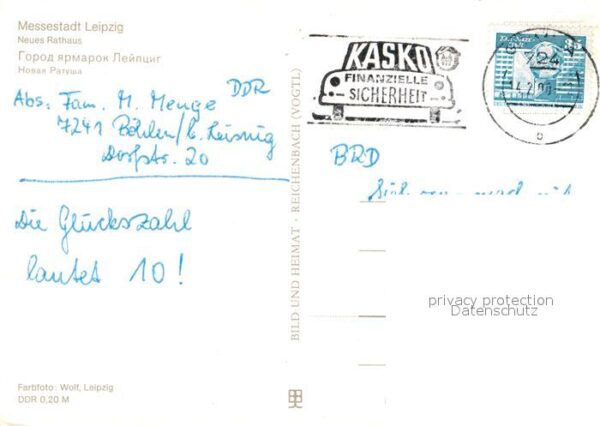 Messestadt Leipzig
Neues Rathaus
Город ярмарок Лейпциг
Новая Ратуша
Abs: Fam. M. Menge DDR
7241 Böhlen/b. Leisnig
Dorfstr. 20
Die Glückszahl
lautet 10!
Farbfoto: Wolf, Leipzig
DDR 0,20 M
BILD UND HEIMAT · REICHENBACH (VOGTL)
KASKO
FINANZIELLE
SICHERHEIT
35
724
BRD
privacy protection
Datenschutz